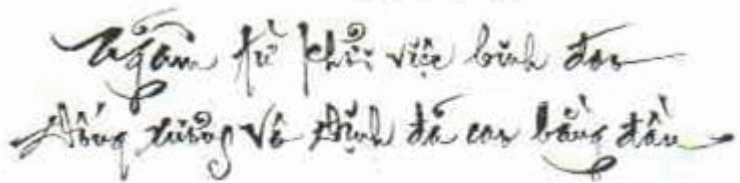 Ngẫm từ khởi việc binh đao
Đống xương Vô Định đã cao bằng đầu